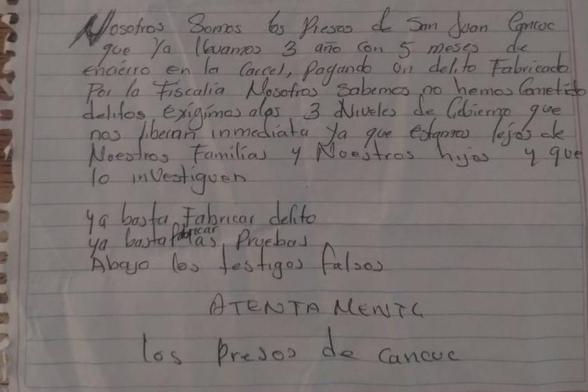 Nosotros Somos los Presos de San Juan Cancuc
que Ya llevamos 3 año con 5 meses de
encierro en la Carcel, Pagando un delito Fabricado
Por la Fiscalia Nosotros Sabemos no hemos Cometido
delitos, exigimos alos 3 Niveles de Gobierno que
nos liberan inmediata Ya que estamos lejos de
Nuestros Familias y Nuestros hijos y que
lo investiguen
Ya basta Fabricar delito
ya basta fabricar las Pruebas
Abajo los testigos Falsos
ATENTAMENTE
los Presos de Cancuc